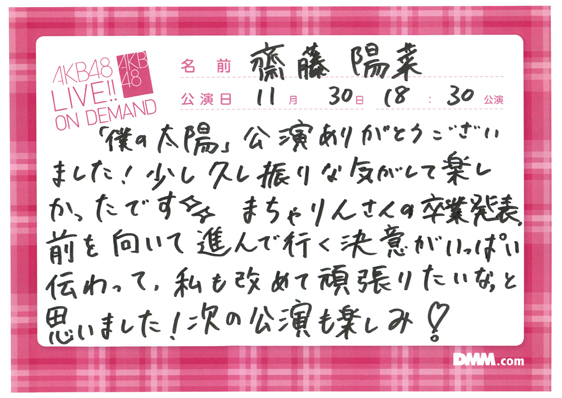 AKB48
LIVE!!
ON DEMAND
AKB
48
名前 齋藤 陽菜
公演日 11月 30日 18:30公演
「僕の太陽」公演ありがとうござい
ました！少し久し振りな気がして楽し
かったです☆☆ まちゃりんさんの卒業発表、
前を向いて進んで行く決意がいっぱい
伝わって、私も改めて頑張りたいなっと
思いました！次の公演も楽しみ♡
DMM.com